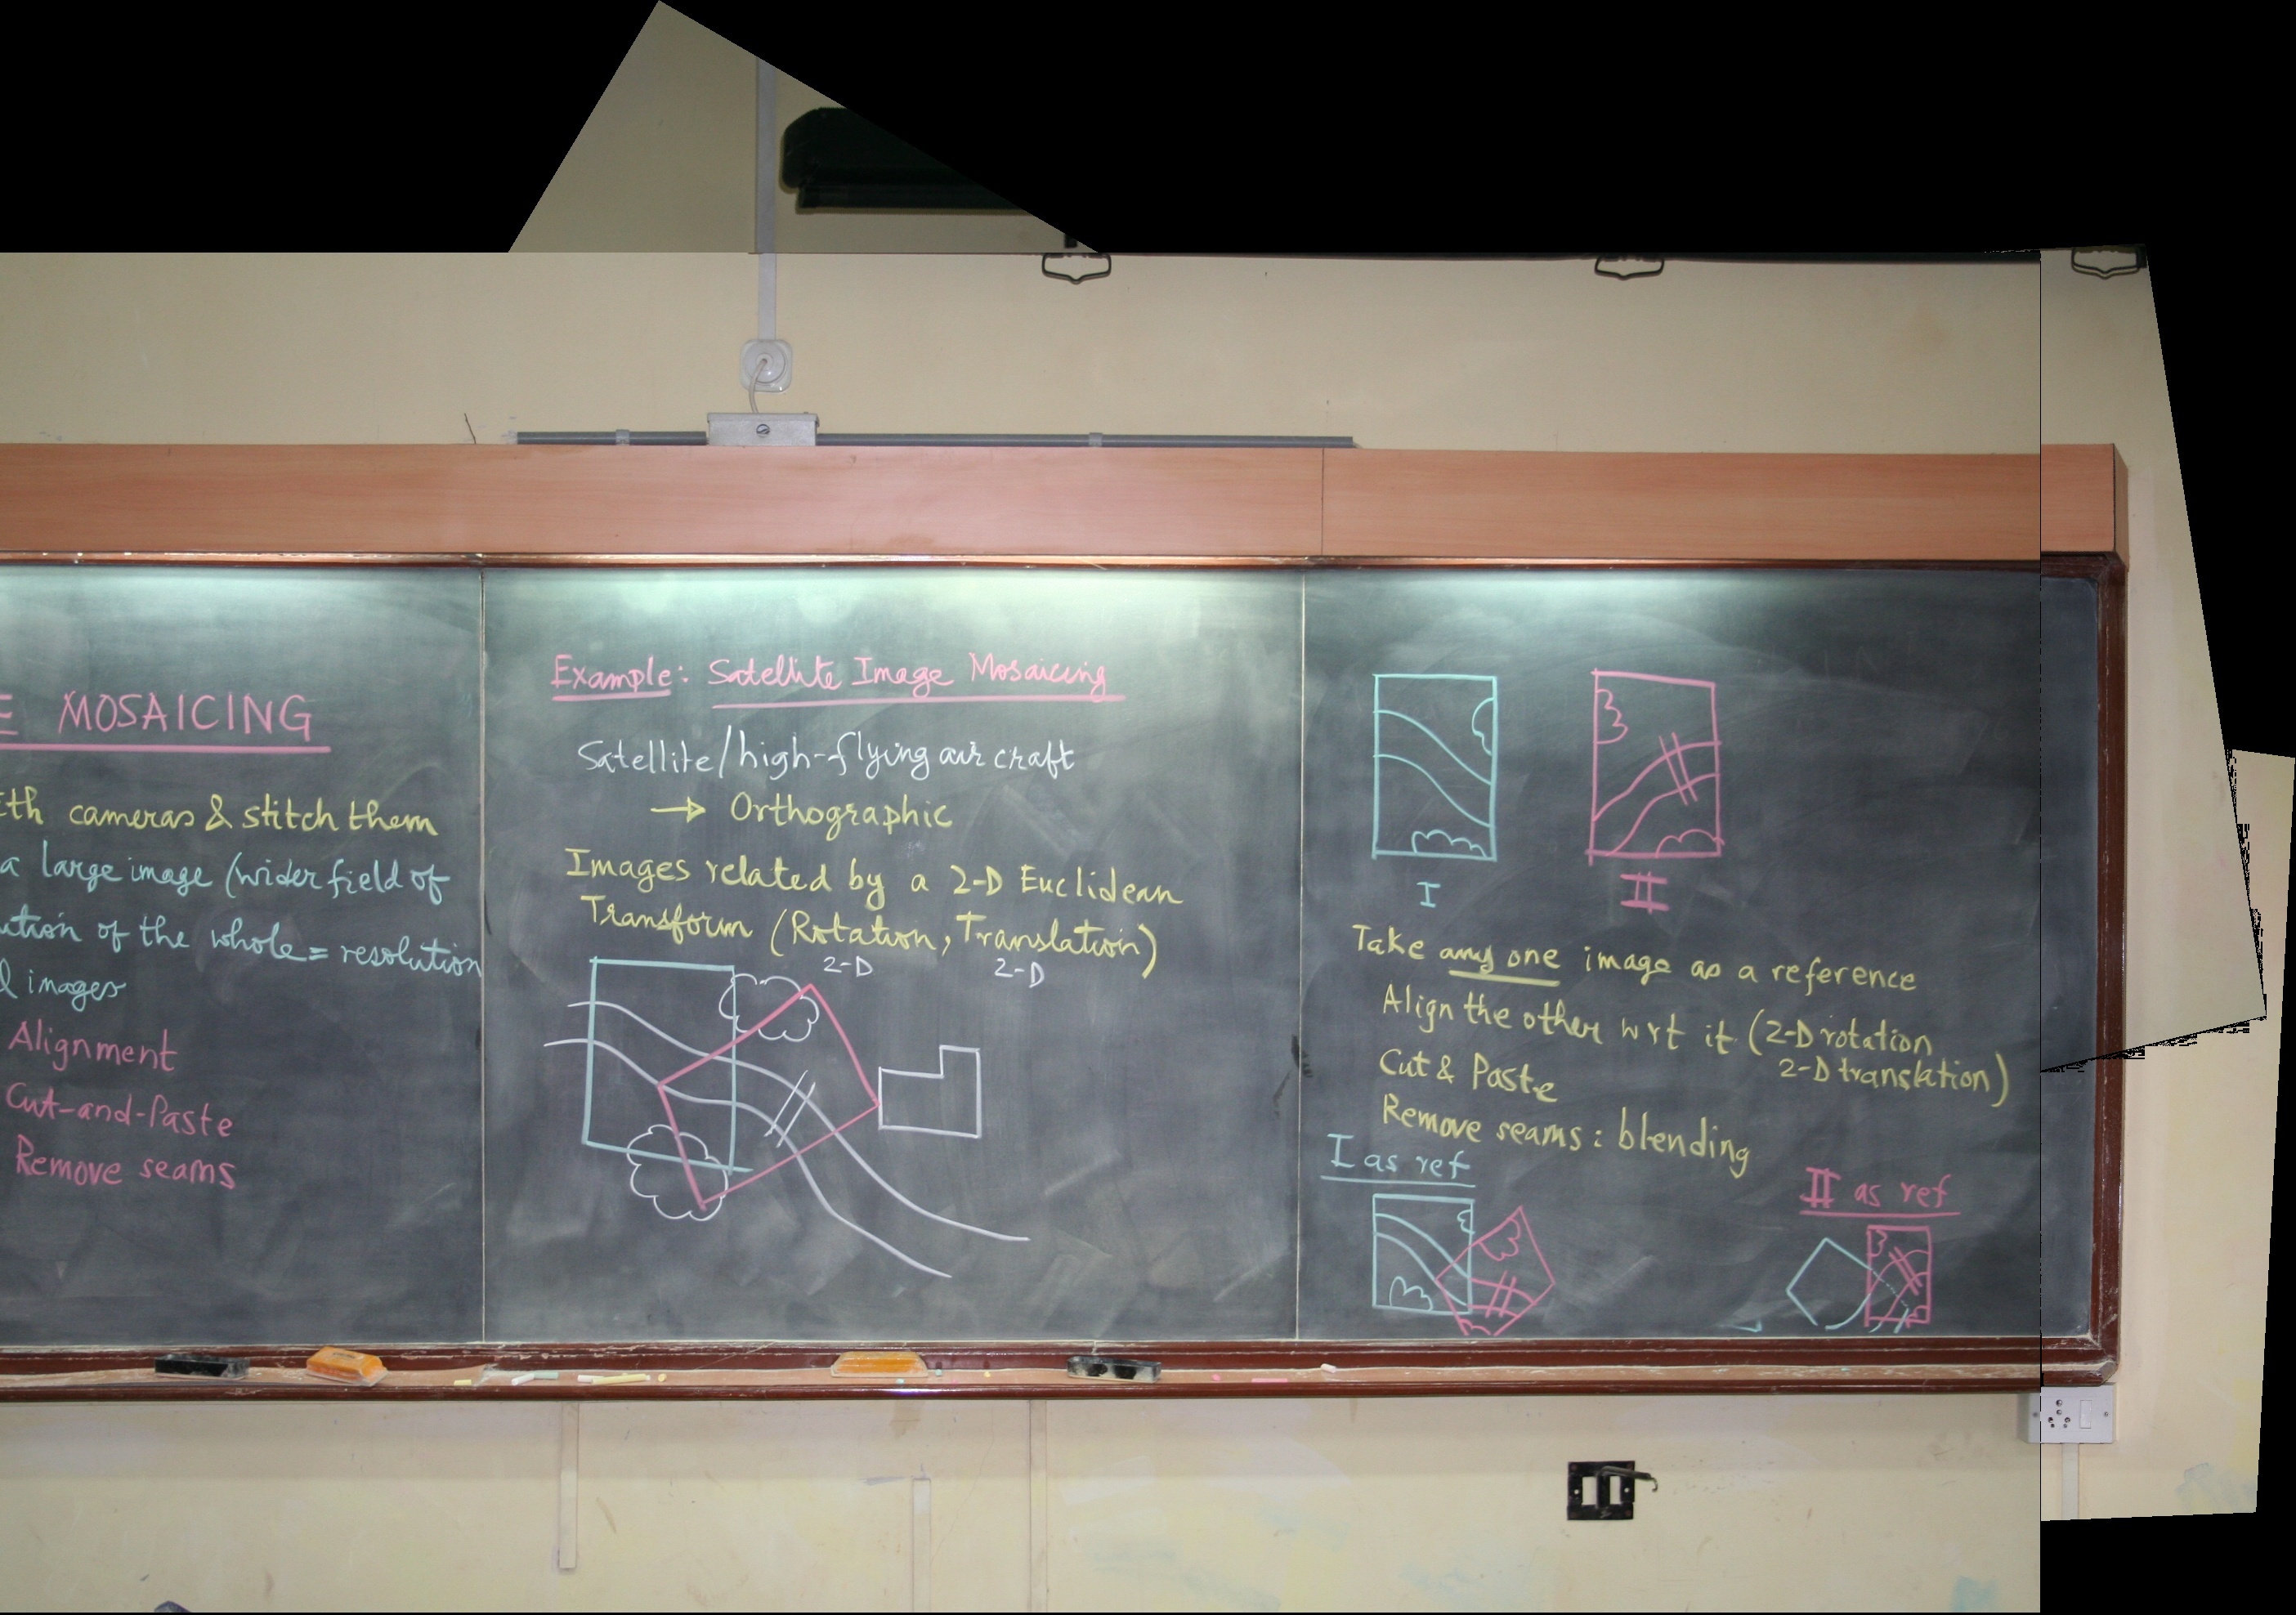 E MOSAICING
th cameras & stitch them
a large image (wider field of
ution of the whole = resolution
l images
Alignment
Cut-and-Paste
Remove seams
Example: Satellite Image Mosaicing
Satellite/high-flying air craft
→ Orthographic
Images related by a 2-D Euclidean
Transform (Rotation, Translation)
2-D 2-D
I II
Take any one image as a reference
Align the other wrt it (2-D rotation
2-D translation)
Cut & Paste
Remove seams: blending
I as ref
II as ref